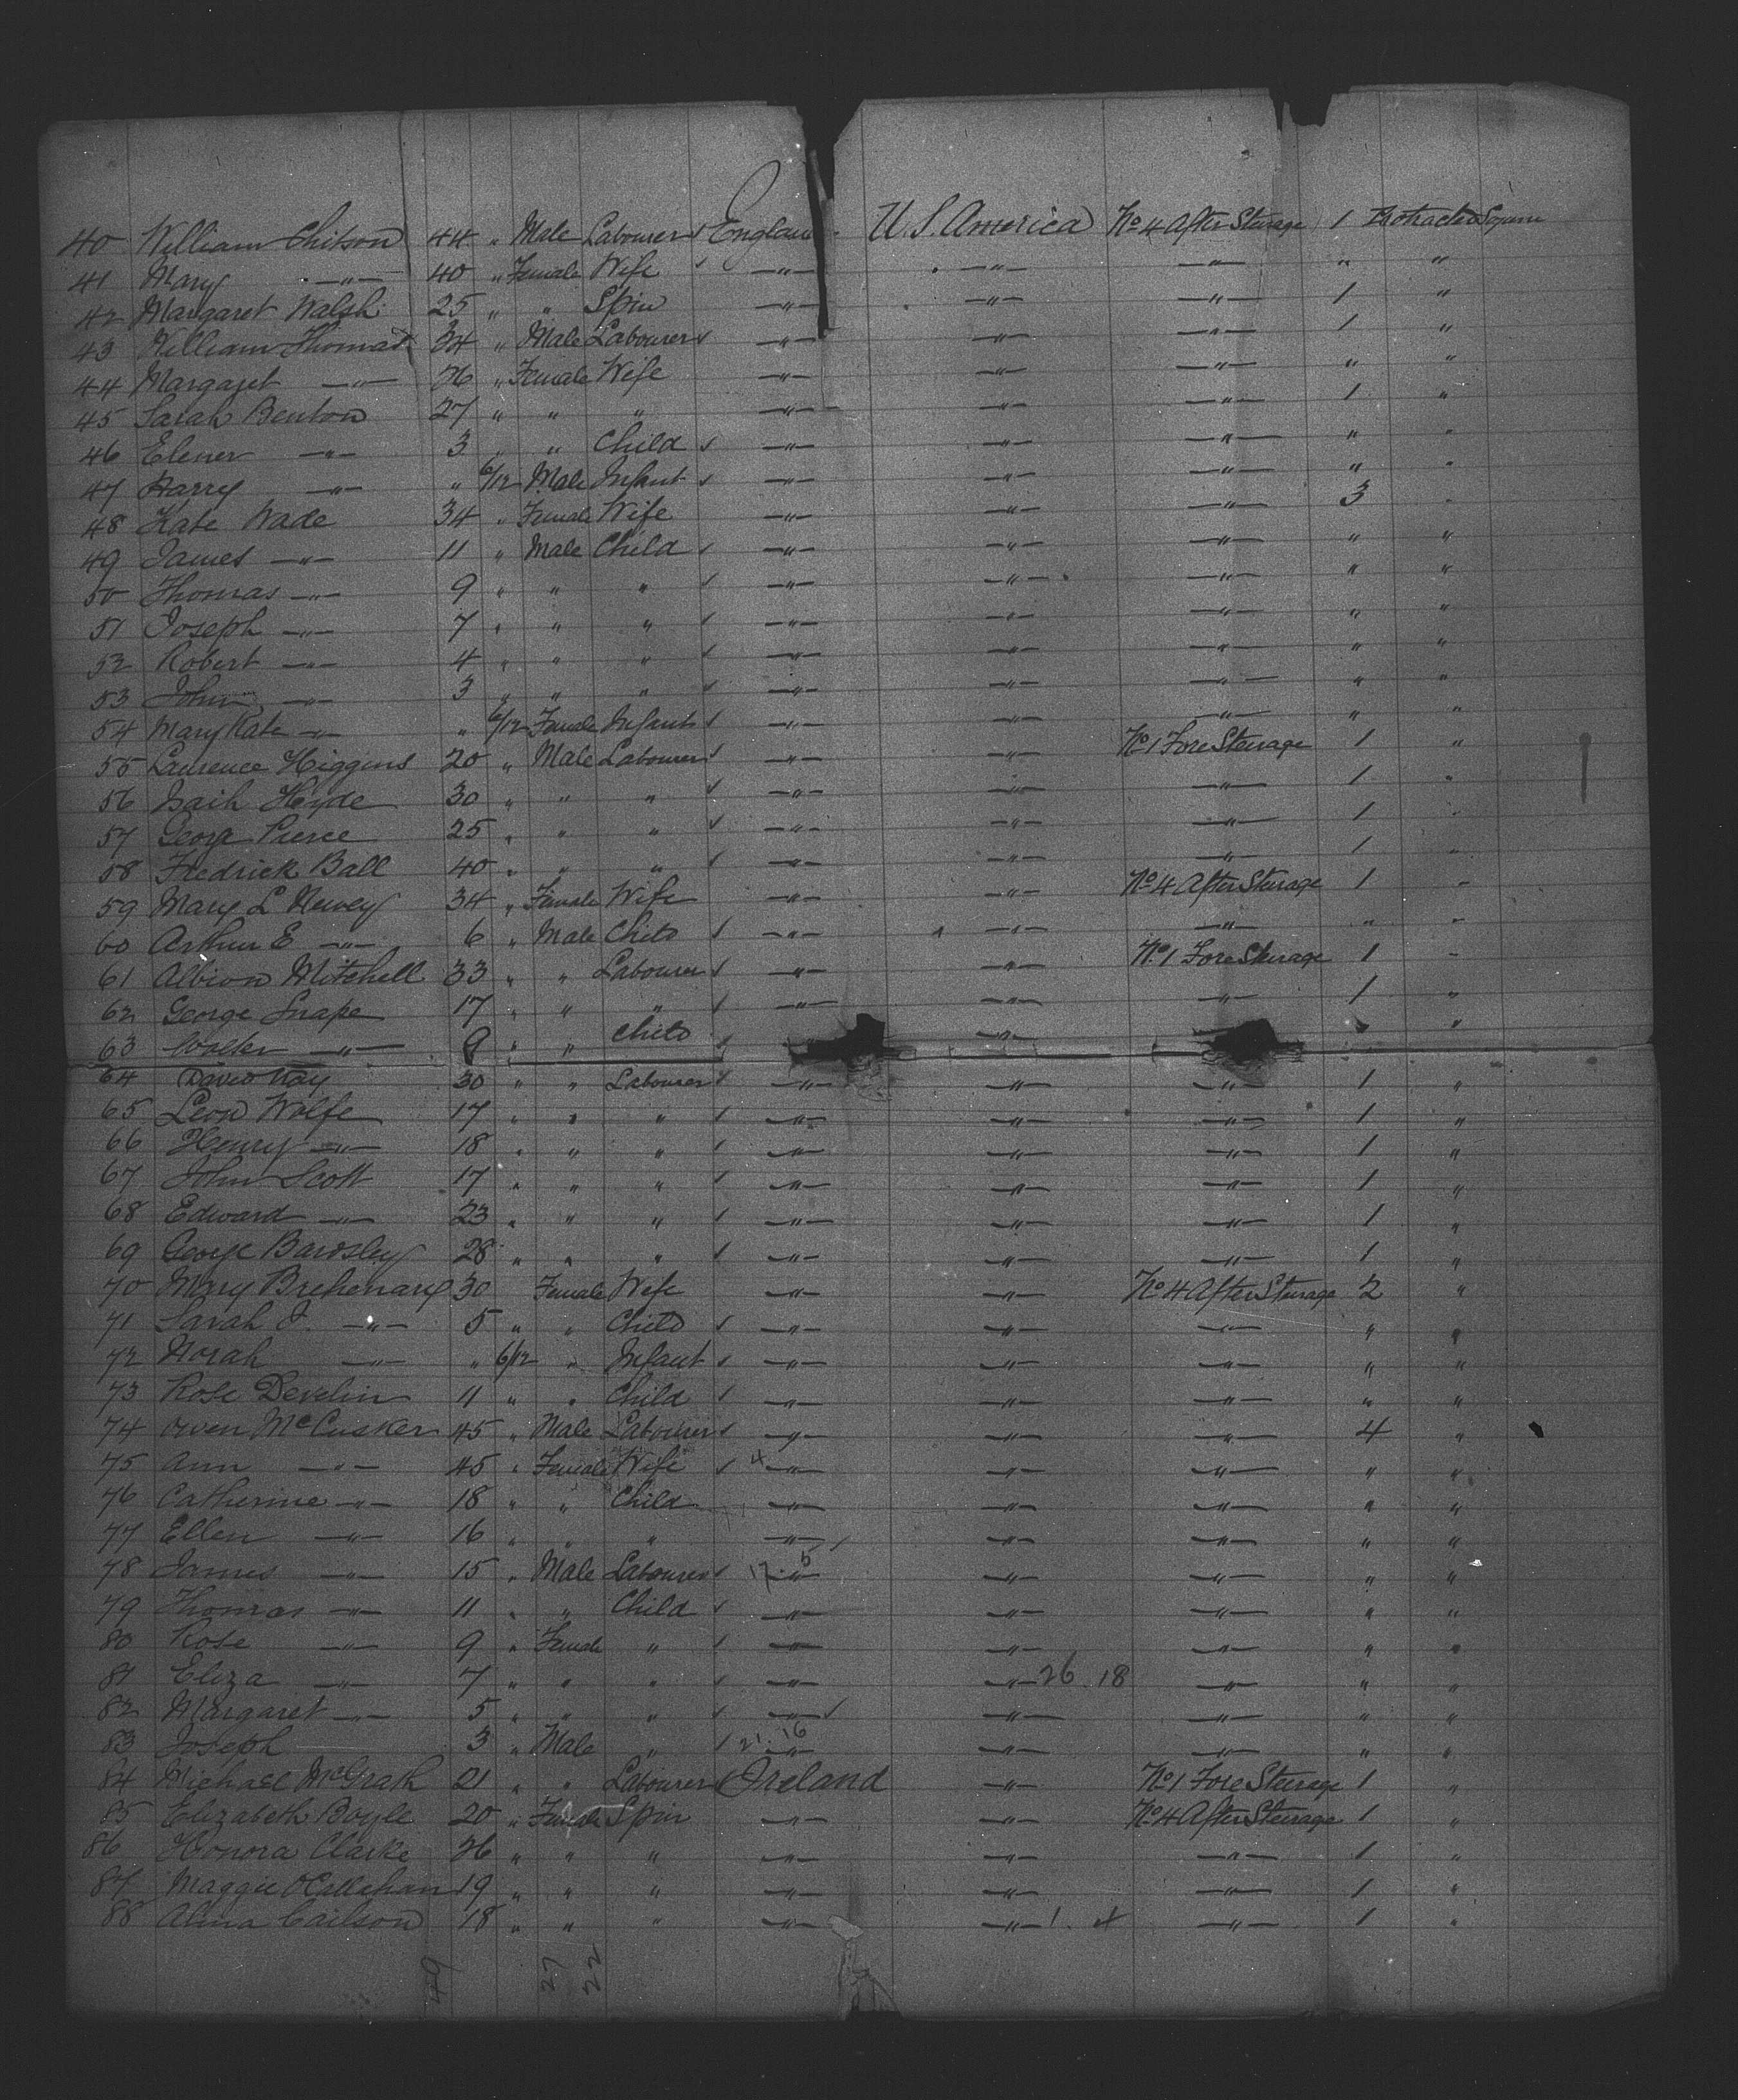 40 William Chitson 44 " Male Labourer England U.S. America No 4 After Sterage 1 Protracted Sojourn
41 Mary —"— 40 " Female Wife —"— —"— —"— " "
42 Margaret Walsh 25 " " Spin —"— —"— —"— 1 "
43 William Thomas 34 " Male Labourer —"— —"— —"— 1 "
44 Margaret —"— 26 " Female Wife —"— —"— —"— " "
45 Sarah Benton 27 " " " —"— —"— —"— 1 "
46 Elener —"— 3 " " Child —"— —"— —"— " "
47 Harry —"— " 6/12 Male Infant —"— —"— —"— " "
48 Kate Wade 34 " Female Wife —"— —"— —"— 3 "
49 James —"— 11 " Male Child —"— —"— —"— " "
50 Thomas —"— 9 " " " —"— —"— —"— " "
51 Joseph —"— 7 " " " —"— —"— —"— " "
52 Robert —"— 4 " " " —"— —"— —"— " "
53 John —"— 3 " " " —"— —"— —"— " "
54 Mary Kate —"— " 6/12 Female Infant —"— —"— —"— " "
55 Laurence Higgins 20 " Male Labourer —"— —"— No 1 Fore Sterage 1 "
56 Isaih Hyde 30 " " " —"— —"— —"— 1 "
57 George Pierce 25 " " " —"— —"— —"— 1 "
58 Fredrick Ball 40 " " " —"— —"— —"— 1 "
59 Mary L Newey 34 " Female Wife —"— —"— No 4 After Sterage 1 "
60 Arthur E —"— 6 " Male Child —"— —"— —"— " "
61 Albion Mitchell 33 " " Labourer —"— —"— No 1 Fore Sterage 1 "
62 George Snape 17 " " " —"— —"— —"— 1 "
63 Walter —"— 9 " " Child —"— "
64 David Kay 30 " " Labourer —"— —"— —"— 1 "
65 Leon Wolfe 17 " " " —"— —"— —"— 1 "
66 Henry —"— 18 " " " —"— —"— —"— 1 "
67 John Scott 17 " " " —"— —"— —"— 1 "
68 Edward —"— 23 " " " —"— —"— —"— 1 "
69 George Bardsley 28 " " " —"— —"— —"— 1 "
70 Mary Brehenary 30 Female Wife —"— —"— No 4 After Sterage 2 "
71 Sarah J. —"— 5 " " Child —"— —"— —"— " "
72 Norah —"— " 6/12 " Infant —"— —"— —"— " "
73 Rose Develin 11 " " Child —"— —"— —"— " "
74 Owen McCusker 45 " Male Labourer —"— —"— —"— 4 "
75 Ann —"— 45 " Female Wife 4 —"— —"— —"— " "
76 Catherine —"— 18 " " Child —"— —"— —"— " "
77 Ellen —"— 16 " " " —"— —"— —"— " "
78 James —"— 15 " Male Labourer 17 5 —"— —"— —"— " "
79 Thomas —"— 11 " " Child —"— —"— —"— " "
80 Rose —"— 9 " Female " —"— —"— —"— " "
81 Eliza —"— 7 " " " —"— —"— 26 18 —"— " "
82 Margaret —"— 5 " " " —"— —"— —"— " "
83 Joseph 3 " Male " 21 16 —"— —"— —"— " "
84 Michael McGrath 21 " " Labourer Ireland —"— No 1 Fore Sterage 1 "
85 Elizabeth Boyle 20 " Female Spin —"— —"— No 4 After Sterage 1 "
86 Honora Clarke 26 " " " —"— —"— —"— 1 "
87 Maggie O'Callahan 19 " " " —"— —"— —"— 1 "
88 Alma Carlson 18 " " " —"— —"— 1 4 —"— 1 "
49 27 22